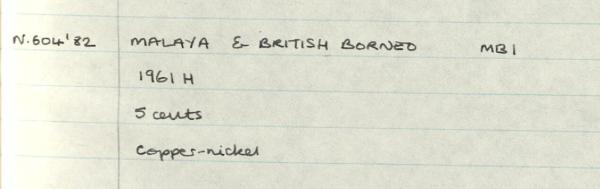 N.604'82 MALAYA & BRITISH BORNEO MB1
1961 H
5 cents
Copper-nickel